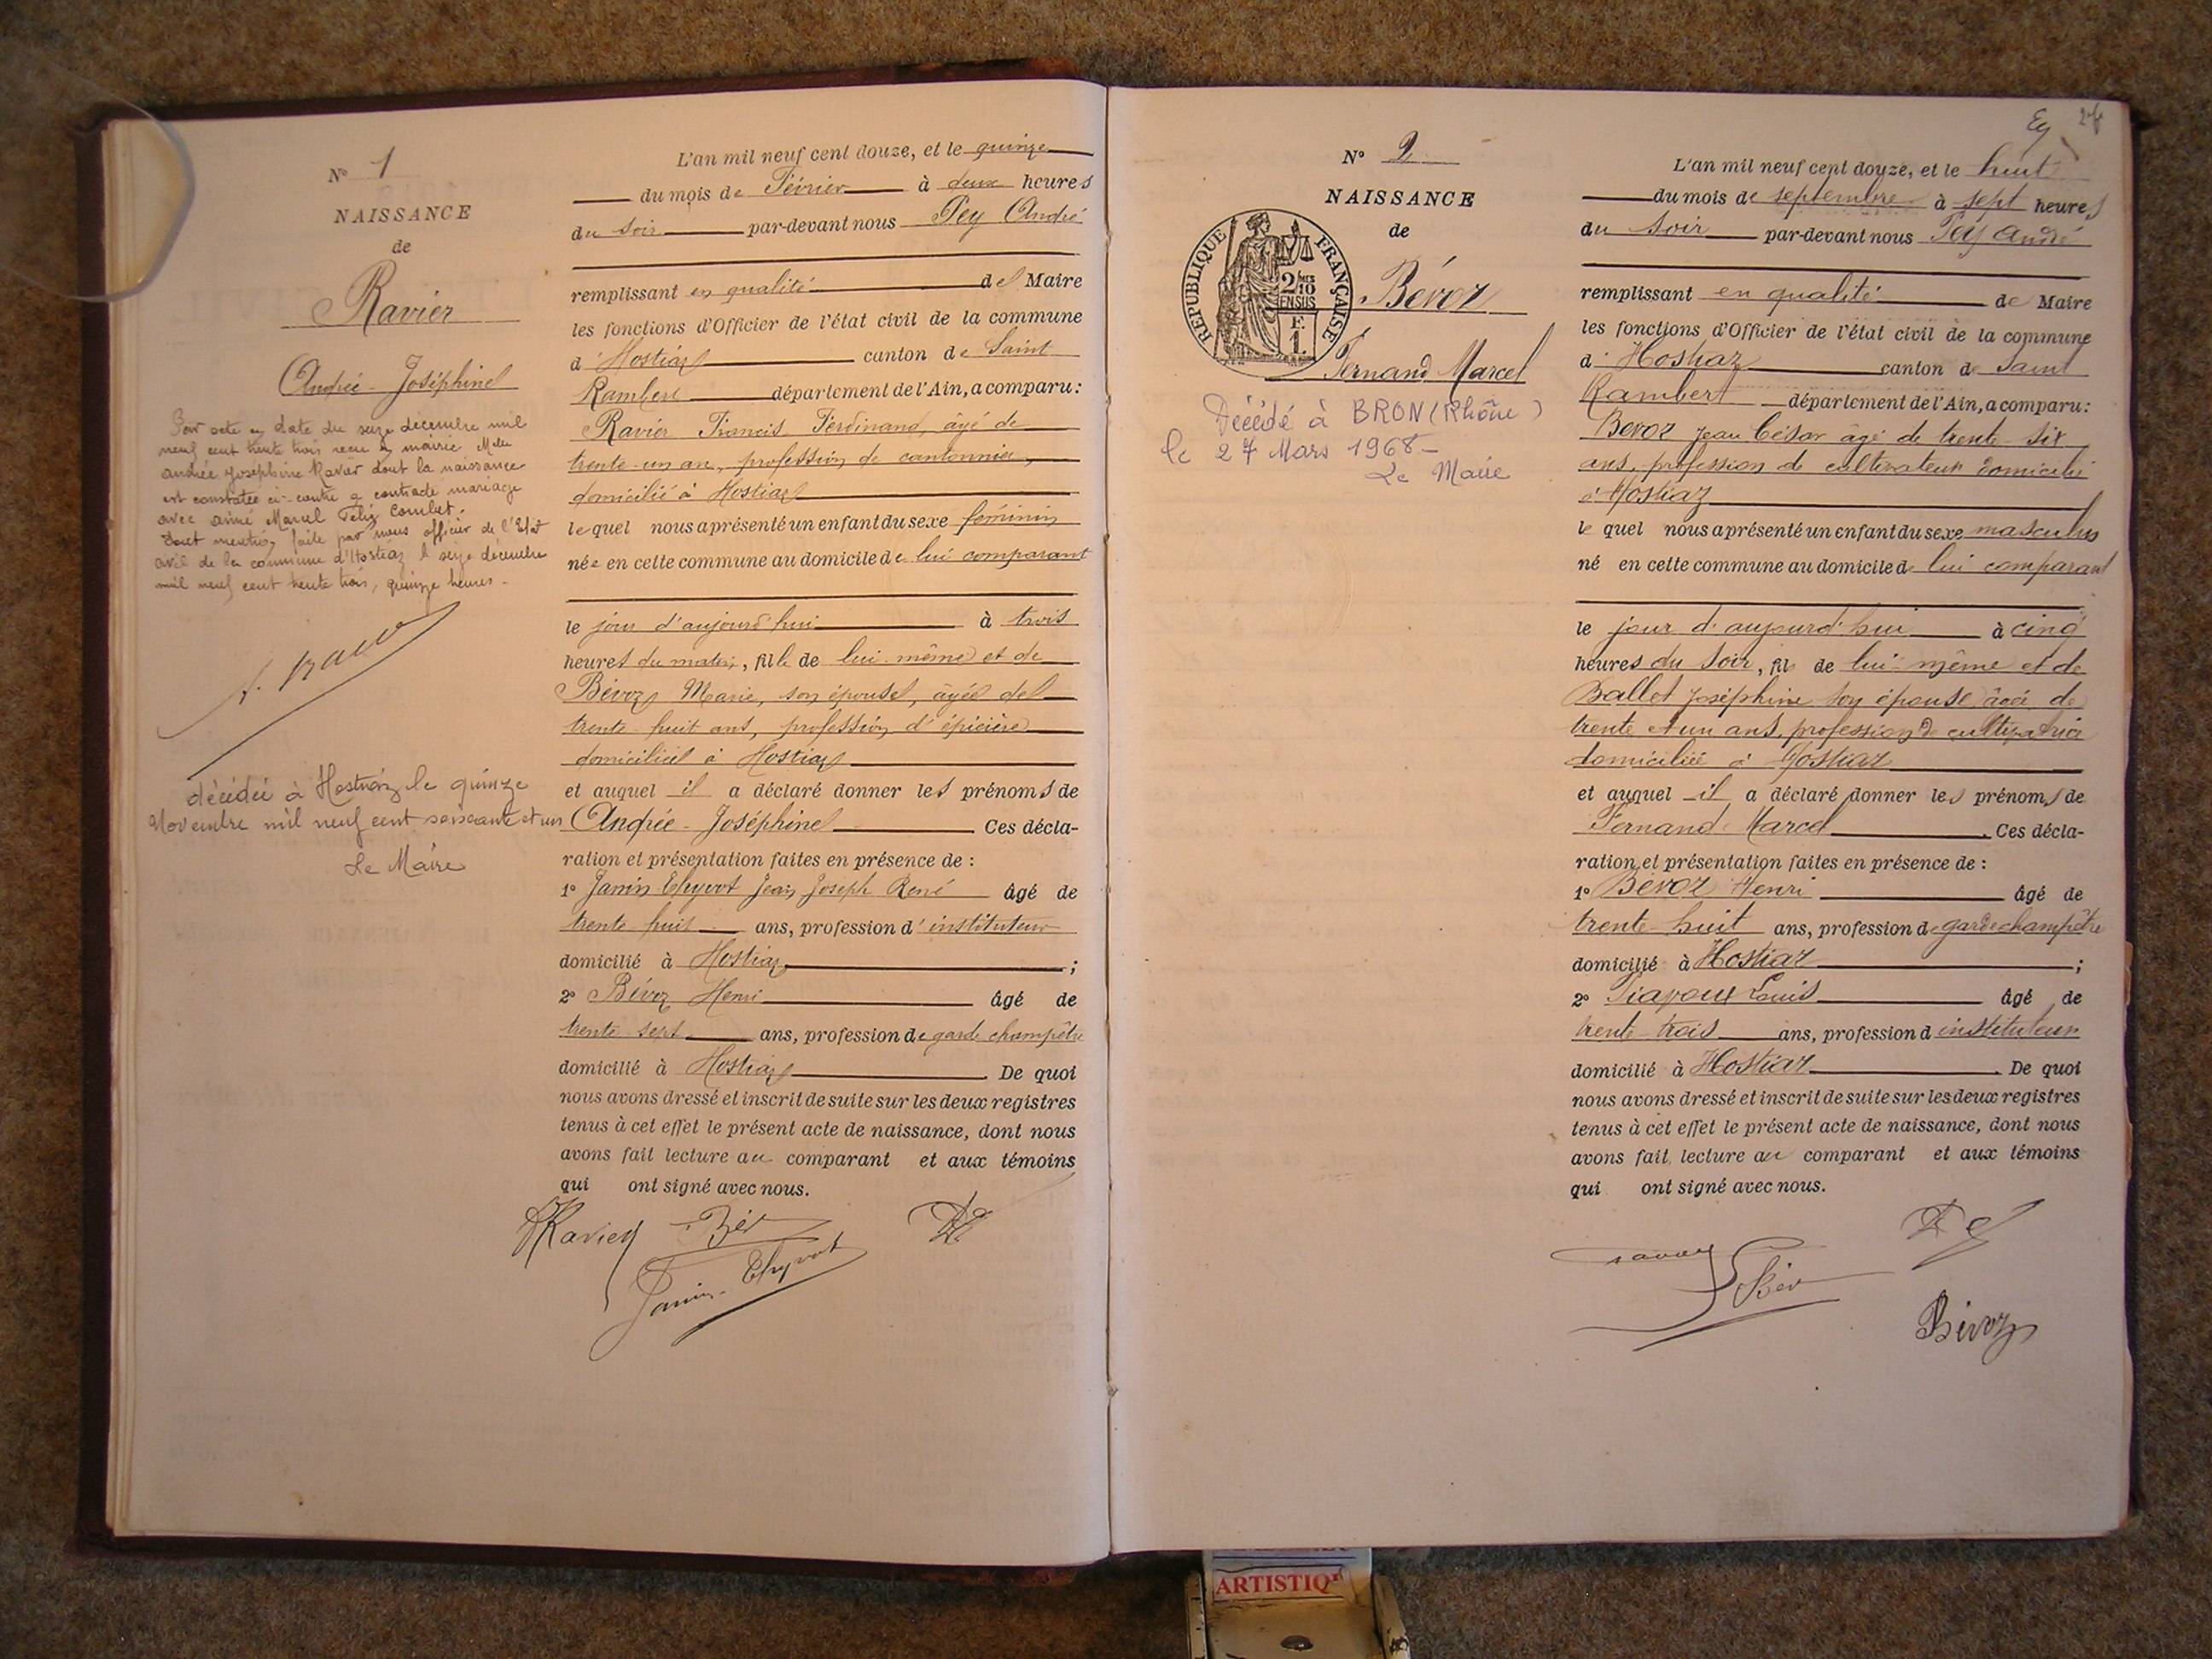 N° 1
NAISSANCE
de
Ravier
Andrée-Joséphine
Par acte en date du seize décembre mil
neuf cent trente trois reçu en mairie Melle
andrée Joséphine Ravier dont la naissance
est constatée ci-contre a contracté mariage
avec aimé Marcel Félix Combet.
Dont mention faite par nous officier de l'Etat
civil de la commune d'Hostiaz le seize décembre
mil neuf cent trente trois, quinze heures.
décédée à Hostiaz le quinze
Novembre mil neuf cent soixante et un
Le Maire
L'an mil neuf cent douze, et le quinze
du mois de Février à deux heures
du soir par-devant nous Pey André
remplissant en qualité de Maire
les fonctions d'Officier de l'état civil de la commune
d'Hostiaz canton de Saint
Rambert département de l'Ain, a comparu:
Ravier Francis Ferdinand, âgé de
trente-un an, profession de cantonnier,
domicilié à Hostiaz
lequel nous a présenté un enfant du sexe féminin
née en cette commune au domicile de lui comparant
le jour d'aujourd'hui à trois
heures du matin, fille de lui-même et de
Bévoz Marie, son épouse, âgée de
trente-huit ans, profession d'épicière
domiciliée à Hostiaz
et auquel il a déclaré donner les prénoms de
Andrée-Joséphine Ces décla-
ration et présentation faites en présence de :
1° Janin Thyvot Jean Joseph René âgé de
trente huit ans, profession d'instituteur
domicilié à Hostiaz ;
2° Bévoz Henri âgé de
trente-sept ans, profession de garde champêtre
domicilié à Hostiaz. De quoi
nous avons dressé et inscrit de suite sur les deux registres
tenus à cet effet le présent acte de naissance, dont nous
avons fait lecture au comparant et aux témoins
qui ont signé avec nous.
Ravier Bév
Janin-Thyvot
N° 2
NAISSANCE
de
REPUBLIQUE FRANÇAISE
2/10
EN SUS
F.
1.
Bévoz
Fernand Marcel
Décédé à BRON (Rhône)
le 27 Mars 1968-
Le Maire
L'an mil neuf cent douze, et le huit
du mois de septembre à sept heures
du soir par-devant nous Pey André
remplissant en qualité de Maire
les fonctions d'Officier de l'état civil de la commune
d'Hostiaz canton de Saint
Rambert département de l'Ain, a comparu:
Bevoz Jean César âgé de trente-six
ans, profession de cultivateur domicilié
à Hostiaz
lequel nous a présenté un enfant du sexe masculin
né en cette commune au domicile de lui comparant
le jour d'aujourd'hui à cinq
heures du soir, fils de lui-même et de
Ballet Joséphine son épouse âgée de
trente et un ans, profession de cultivatrice
domiciliée à Hostiaz
et auquel il a déclaré donner les prénoms de
Fernand Marcel. Ces décla-
ration et présentation faites en présence de :
1° Bévoz Henri âgé de
trente-huit ans, profession de garde champêtre
domicilié à Hostiaz ;
2° Louis âgé de
trente-trois ans, profession d instituteur
domicilié à Hostiaz. De quoi
nous avons dressé et inscrit de suite sur les deux registres
tenus à cet effet le présent acte de naissance, dont nous
avons fait lecture au comparant et aux témoins
qui ont signé avec nous.
Bév
Bévoz
ARTISTIQ